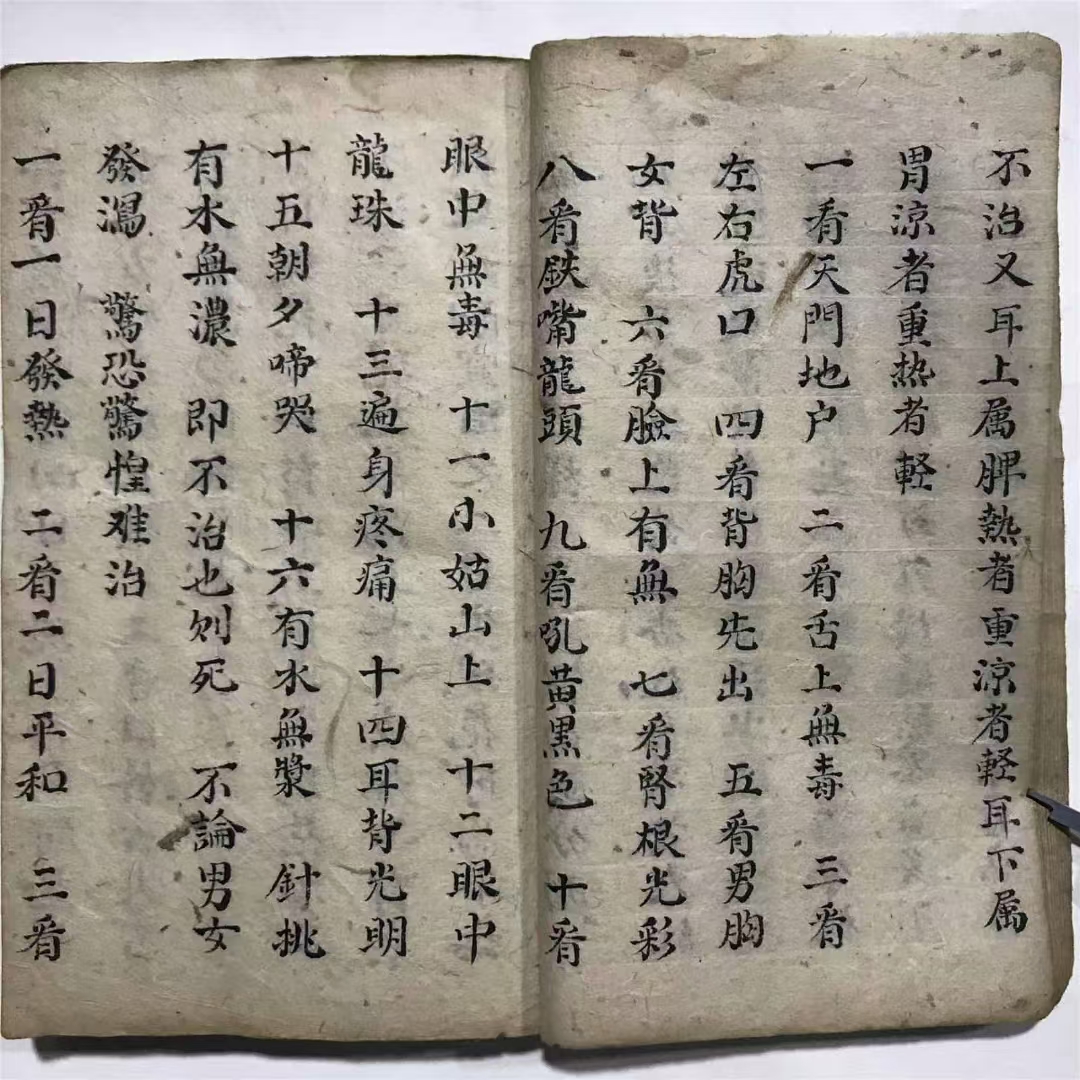 不治又耳上属脾熱者重涼者軽耳下属
胃涼者重热者軽
一看天門地户 二看舌上無毒 三看
左右虎口 四看背胸先出 五看男胸
女背 六看臉上有無 七看腎根光彩
八看鉄嘴龍頭 九看吼黄黒色 十看
眼中無毒 十一小姑山上 十二眼中
龍珠 十三遍身疼痛 十四耳背光明
十五朝夕啼哭 十六有水無漿 針挑
有水無濃 即不治也则死 不論男女
發瀉 驚恐驚惶难治
一看一日發熱 二看二日平和 三看